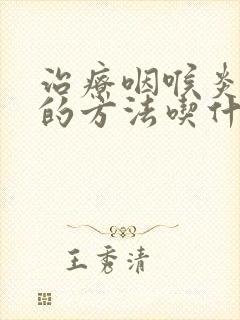 治療咽喉炎
的方法喫什
王秀清